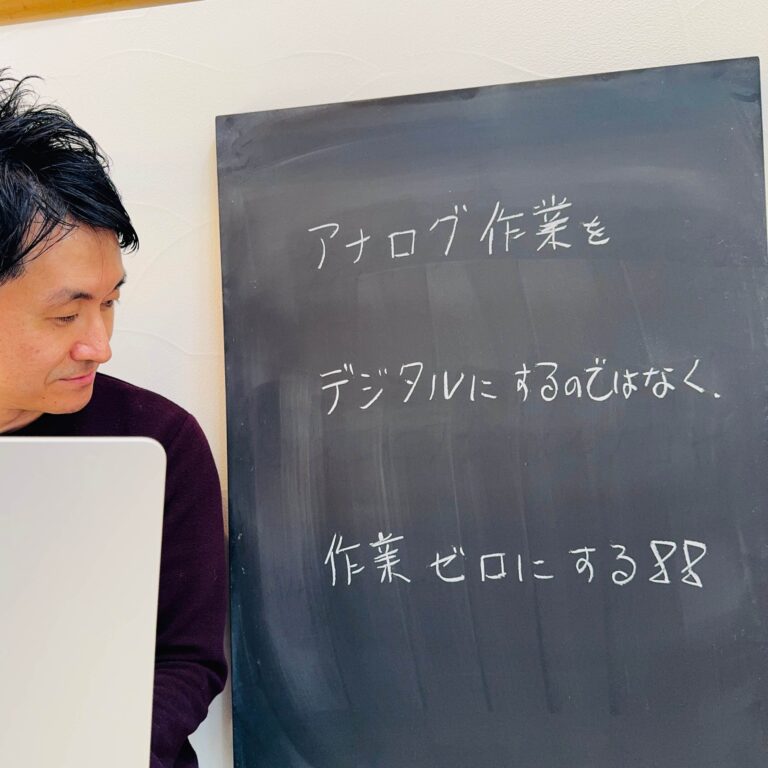 アナログ作業を
デジタルにするのではなく、
作業ゼロにする!!